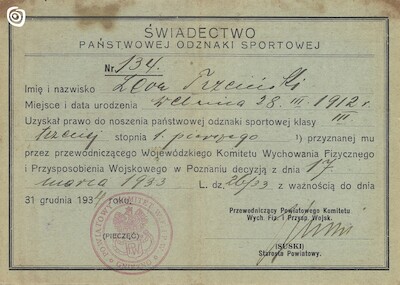 ŚWIADECTWO
PAŃSTWOWEJ ODZNAKI SPORTOWEJ
Nr. 134.
Imię i nazwisko
Miejsce i data urodzenia 28. III. 1912 r.
Uzyskał prawo do noszenia państwowej odznaki sportowej klasy III
stopnia 1. ¹) przyznanej mu
przez przewodniczącego Wojewódzkiego Komitetu Wychowania Fizycznego
i Przysposobienia Wojskowego w Poznaniu decyzją z dnia 17
marca 1933 L. dz. 26/33 z ważnością do dnia
31 grudnia 193 roku.
Przewodniczący Powiatowego Komitetu
Wych. Fiz. i Przysp. Wojsk.
(PIECZĘĆ)
(SUSKI)
Starosta Powiatowy.